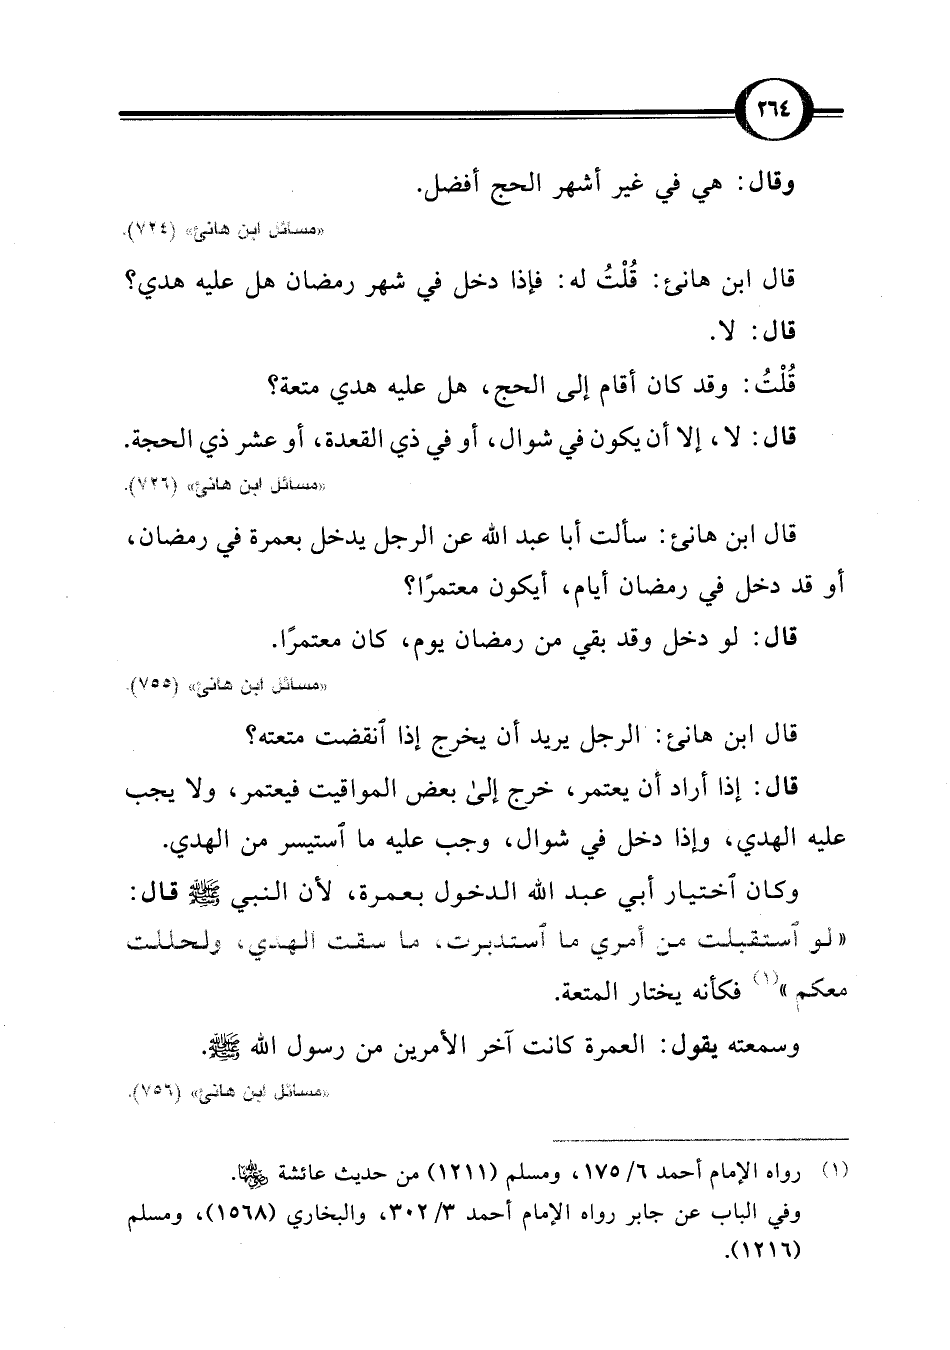 ٢٦٤
وقال: هي في غير أشهر الحج أفضل.
«مسائل ابن هانئ» (٧٢٤).
قال ابن هانئ: قُلْتُ له: فإذا دخل في شهر رمضان هل عليه هدي؟
قال: لا.
قُلْتُ: وقد كان أقام إلى الحج، هل عليه هدي متعة؟
قال: لا، إلا أن يكون في شوال، أو في ذي القعدة، أو عشر ذي الحجة.
«مسائل ابن هانئ» (٧٢٦).
قال ابن هانئ: سألت أبا عبد الله عن الرجل يدخل بعمرة في رمضان،
أو قد دخل في رمضان أيام، أيكون معتمرًا؟
قال: لو دخل وقد بقي من رمضان يوم، كان معتمرًا.
«مسائل ابن هانئ» (٧٥٥).
قال ابن هانئ: الرجل يريد أن يخرج إذا ٱنقضت متعته؟
قال: إذا أراد أن يعتمر، خرج إلىٰ بعض المواقيت فيعتمر، ولا يجب
عليه الهدي، وإذا دخل في شوال، وجب عليه ما ٱستيسر من الهدي.
وكان ٱختيار أبي عبد الله الدخول بعمرة، لأن النبي ﷺ قال:
«لو ٱستقبلت من أمري ما ٱستدبرت، ما سقت الهدي، ولحللت
معكم»(١) فكأنه يختار المتعة.
وسمعته يقول: العمرة كانت آخر الأمرين من رسول الله ﷺ.
«مسائل ابن هانئ» (٧٥٦).
(١) رواه الإمام أحمد ٦/ ١٧٥، ومسلم (١٢١١) من حديث عائشة رضي الله عنها.
وفي الباب عن جابر رواه الإمام أحمد ٣/ ٣٠٢، والبخاري (١٥٦٨)، ومسلم
(١٢١٦).